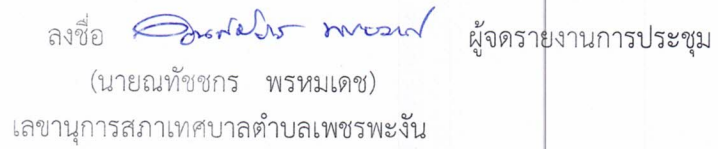 ลงชื่อ ผู้จดรายงานการประชุม
(นายณทัชชกร พรหมเดช)
เลขานุการสภาเทศบาลตำบลเพชรพะงัน